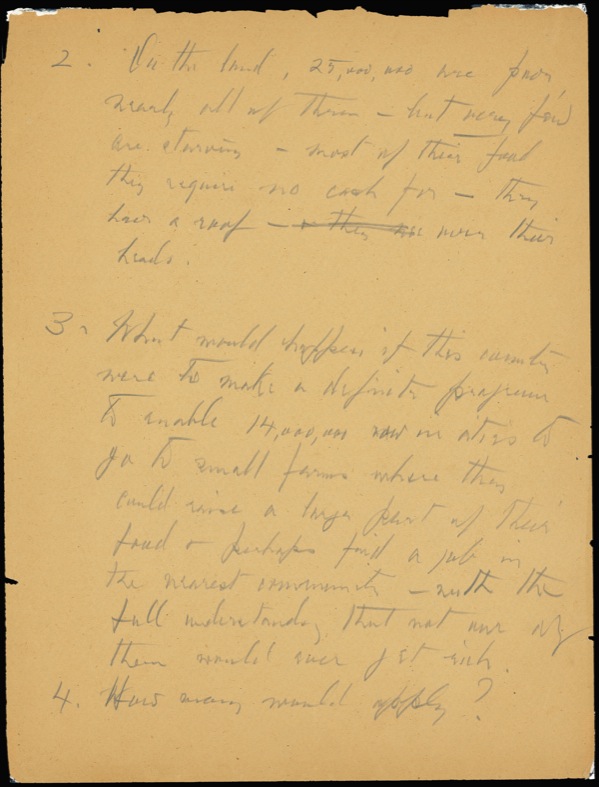 2. On the land, 25,000,000 are poor
nearly all of them – but very few
are starving – most of their food
they require no cash for – they
have a roof – over their
heads.
3. What would happen if this country
were to make a definite program
to enable 14,000,000 now in cities to
go to small farms where they
could raise a large part of their
food & perhaps find a job in
the nearest community – with the
full understanding that not one of
them would ever get rich.
4. How many would apply?